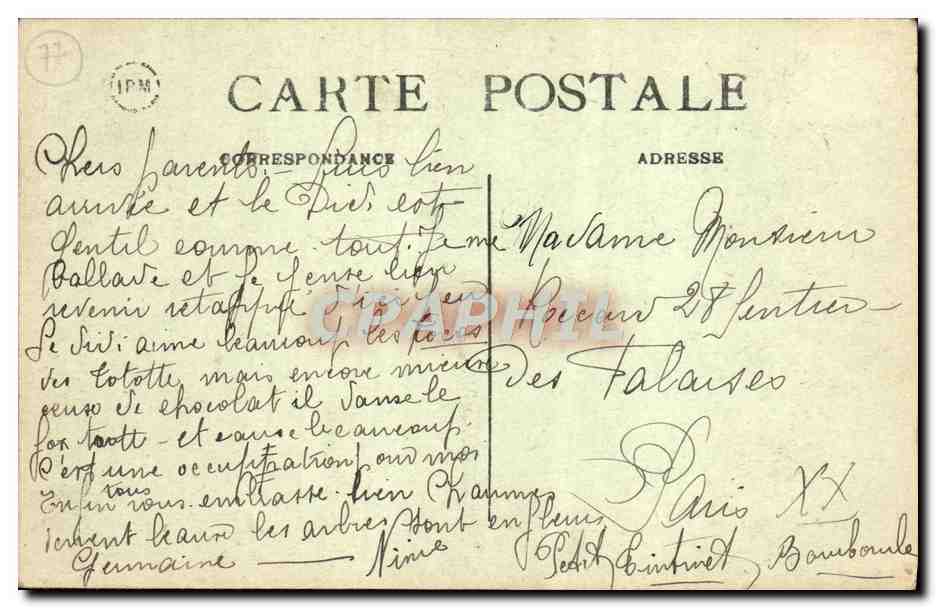 77
IPM
CARTE POSTALE
CORRESPONDANCE
ADRESSE
Chers parents. bien
arrivée et le Didi est
Gentil comme tout. Je me
Ballade et je pense bien
revenir retappé d'ici
Le didi aime beaucoup les
des tototte mais encore mieux
ceux de chocolat il danse le
fox trott et cause beaucoup
C'est une occupation
Enfin tous vous embrasse bien
beau les arbres sont en fleurs
Germaine — Nine
Madame Monsieur
28 Sentier
Des Falaises
Paris XX
Petit Bourboule
CPAPHIL